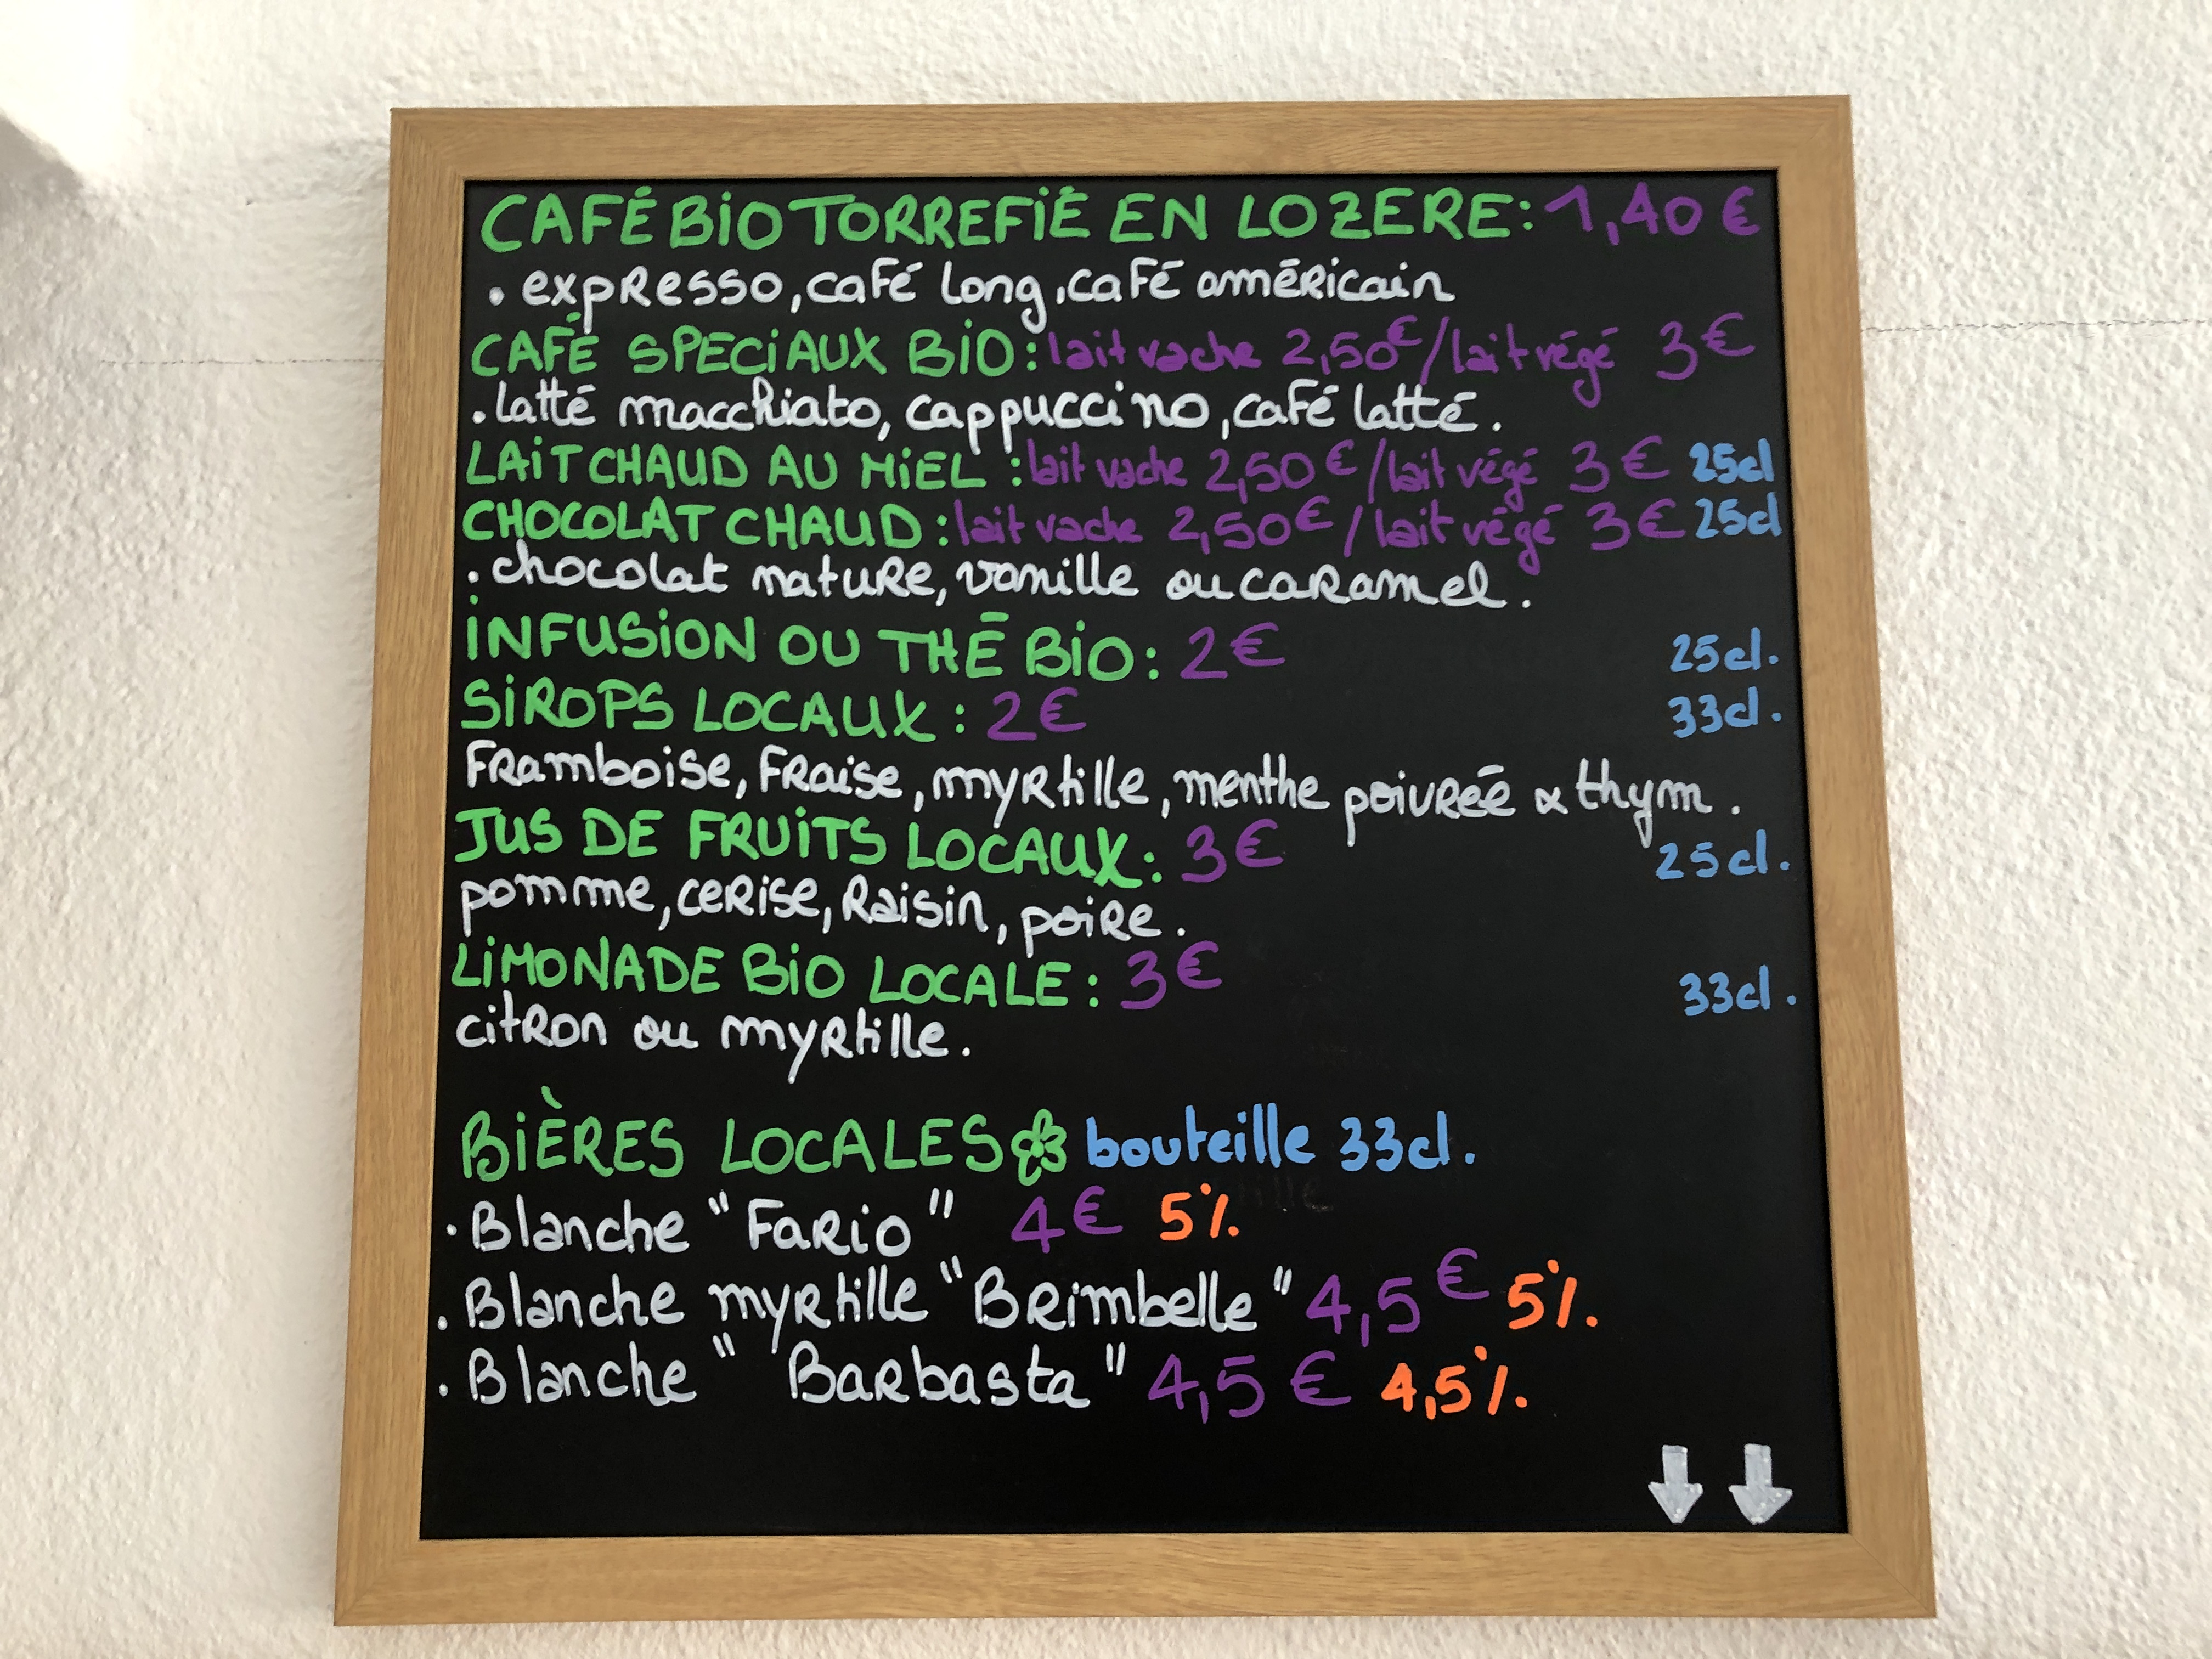 CAFÉ BIO TORREFIÉ EN LOZERE: 1,40 €
. expresso, café long, café américain
CAFÉ SPECIAUX BIO: lait vache 2,50€/lait végé 3€
. latté macchiato, cappuccino, café latté.
LAIT CHAUD AU MIEL: lait vache 2,50€/lait végé 3€ 25cl
CHOCOLAT CHAUD: lait vache 2,50€/lait végé 3€ 25cl
. chocolat nature, vanille ou caramel.
INFUSION OU THÉ BIO: 2€ 25cl.
SIROPS LOCAUX: 2€ 33cl.
Framboise, Fraise, myrtille, menthe poivréé & thym.
JUS DE FRUITS LOCAUX: 3€ 25cl.
pomme, cerise, Raisin, poire.
LIMONADE BIO LOCALE: 3€ 33cl.
citron ou myrtille.
BIÈRES LOCALES bouteille 33cl.
. Blanche "Fario" 4€ 5%
. Blanche myrtille "Brimbelle" 4,5€ 5%
. Blanche "Barbasta" 4,5€ 4,5%